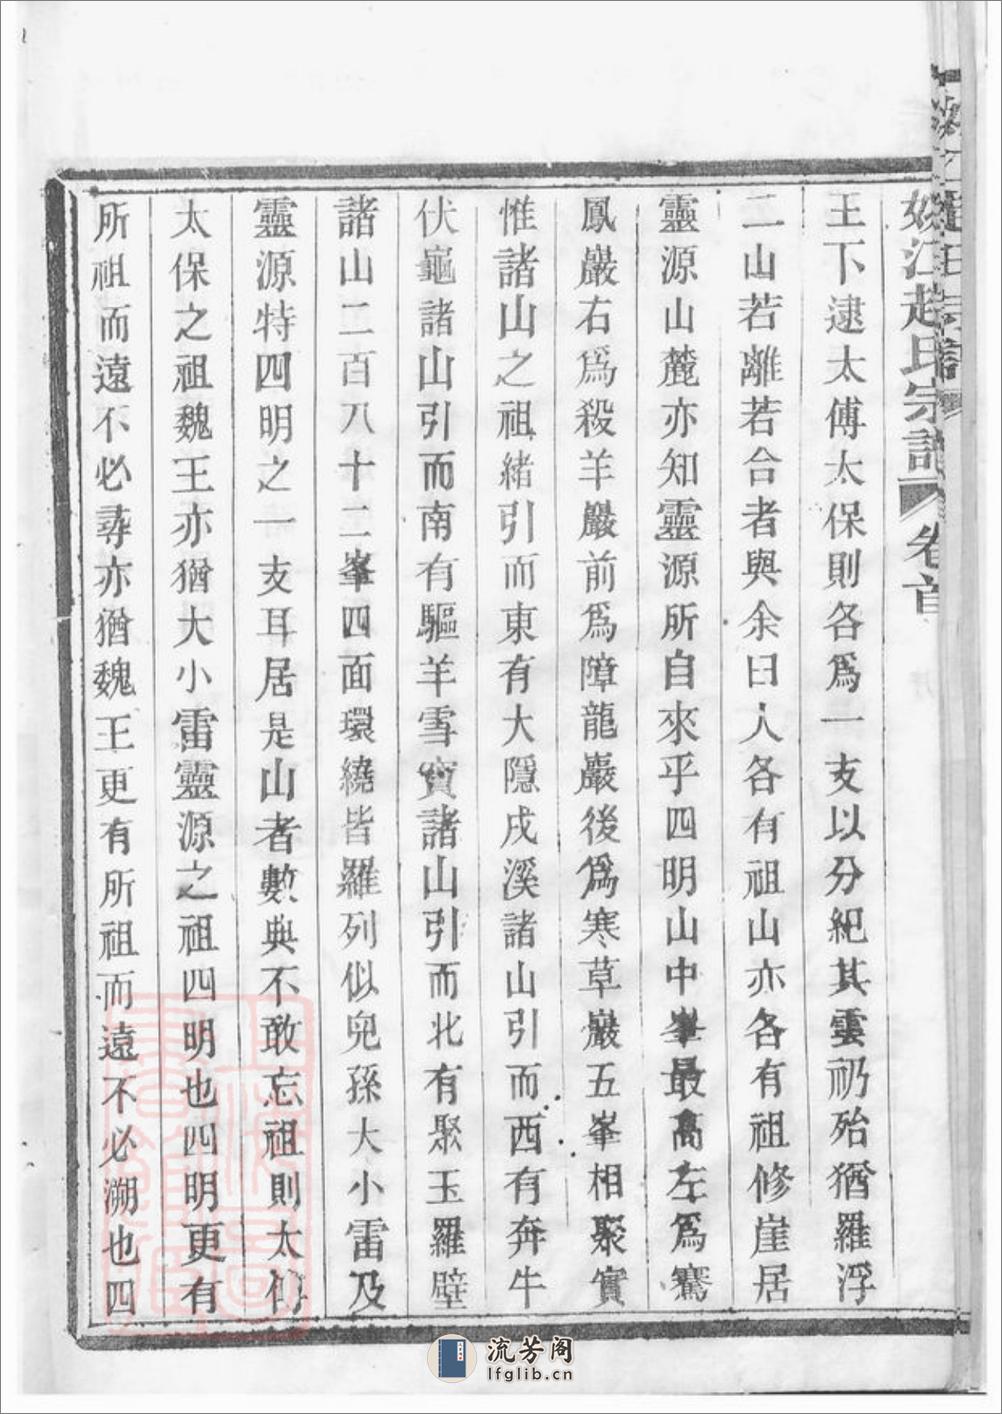 姚江趙氏宗譜 卷首
王下逮太傅太保則各爲一支以分紀其雲礽殆猶羅浮
二山若離若合者與余曰人各有祖山亦各有祖修崖居
靈源山麓亦知靈源所自來乎四明山中峯最高左爲鶱
鳳巖右爲殺羊巖前爲障龍巖後爲寒草巖五峯相聚實
惟諸山之祖緒引而東有大隱戌溪諸山引而西有奔牛
伏龜諸山引而南有驅羊雪竇諸山引而北有聚玉羅壁
諸山二百八十二峯四面環繞皆羅列似兒孫大小雷及
靈源特四明之一支耳居是山者數典不敢忘祖則太傅
太保之祖魏王亦猶大小雷靈源之祖四明也四明更有
所祖而遠不必尋亦猶魏王更有所祖而遠不必溯也四
流芳阁
lfglib.cn